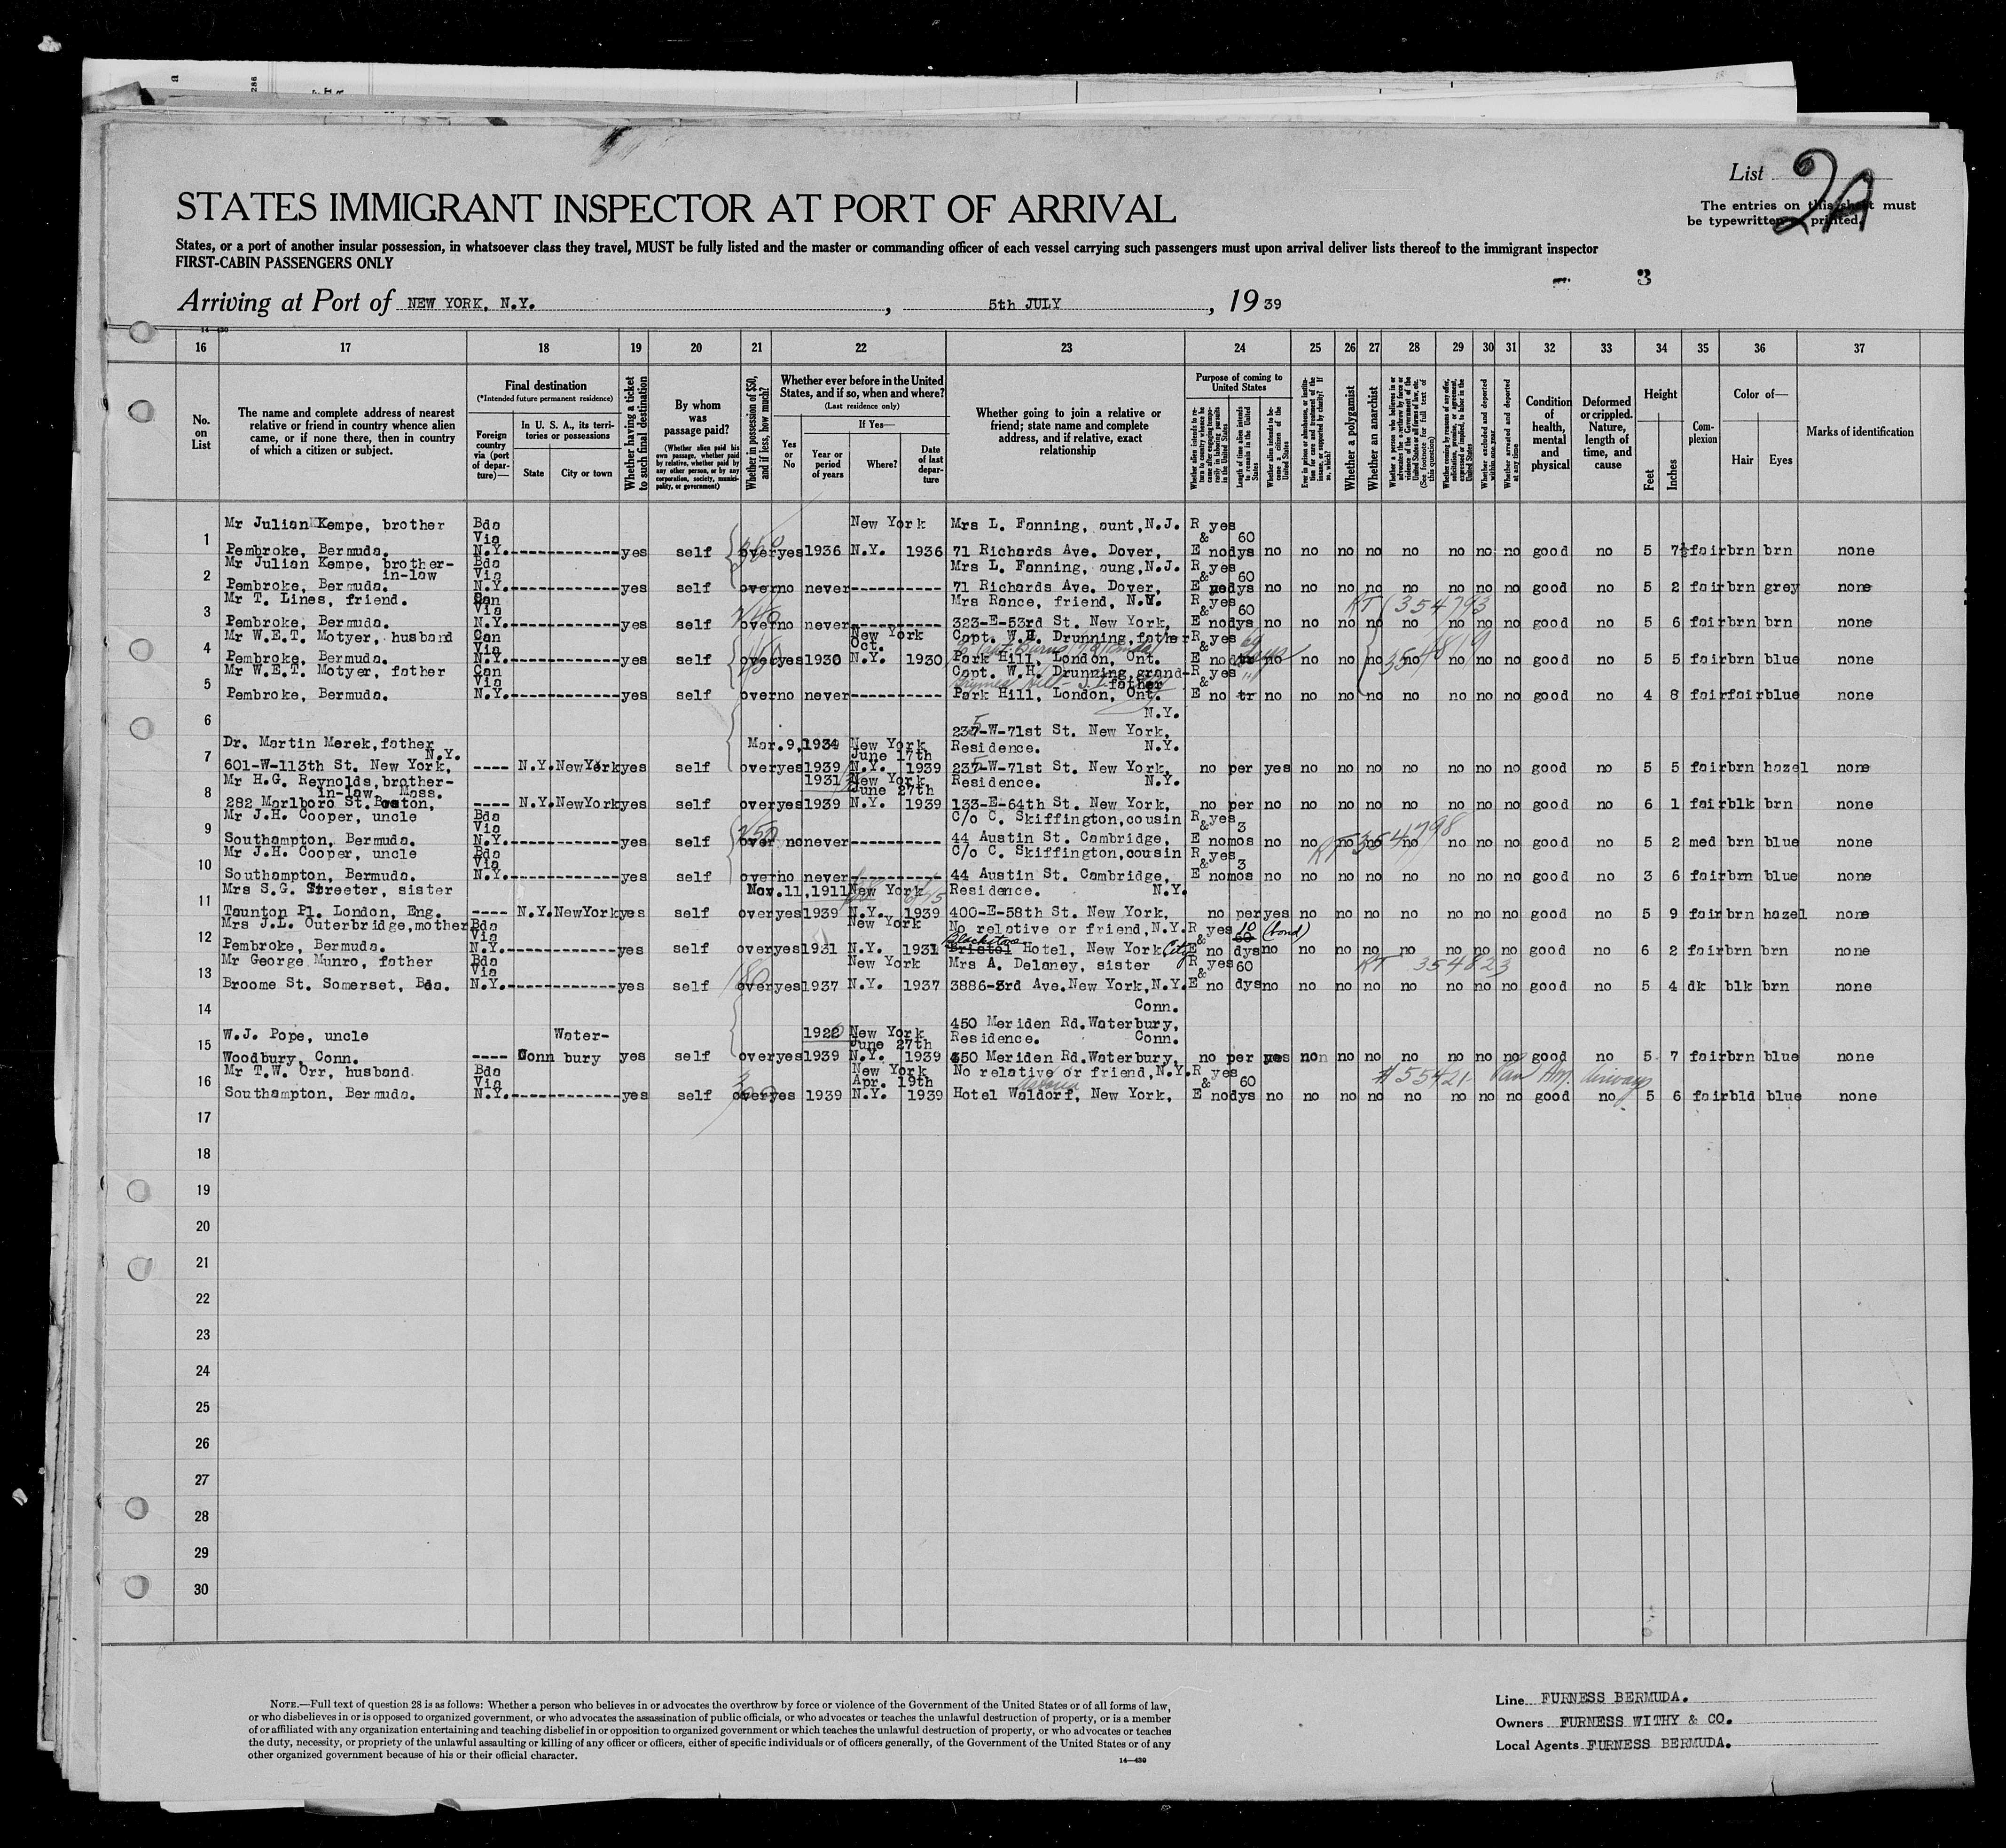 List 2A
The entries on this sheet must
be typewritten or printed.
STATES IMMIGRANT INSPECTOR AT PORT OF ARRIVAL
States, or a port of another insular possession, in whatsoever class they travel, MUST be fully listed and the master or commanding officer of each vessel carrying such passengers must upon arrival deliver lists thereof to the immigrant inspector
FIRST-CABIN PASSENGERS ONLY
3
Arriving at Port of NEW YORK, N.Y. , 5th JULY , 19 39
14—430
16 17 18 19 20 21 22 23 24 25 26 27 28 29 30 31 32 33 34 35 36 37
No. on List
The name and complete address of nearest relative or friend in country whence alien came, or if none there, then in country of which a citizen or subject.
Final destination
(*Intended future permanent residence)
Foreign country via (port of departure)—
In U. S. A., its territories or possessions
State City or town
Whether having a ticket to such final destination
By whom was passage paid?
(Whether alien paid his own passage, whether paid by relative, whether paid by any other person, or by any corporation, society, municipality, or government)
Whether in possession of $50, and if less, how much?
Whether ever before in the United States, and if so, when and where?
(Last residence only)
If Yes—
Yes or No
Year or period of years
Where?
Date of last departure
Whether going to join a relative or friend; state name and complete address, and if relative, exact relationship
Purpose of coming to United States
Length of time alien intends to remain in the United States
Whether alien intends to become a citizen of the United States
Whether a polygamist
Whether an anarchist
Whether excluded and deported within one year
Whether arrested and deported at any time
Condition of health, mental and physical
Deformed or crippled. Nature, length of time, and cause
Height
Feet Inches
Complexion
Color of—
Hair Eyes
Marks of identification
Mr Julian Kempe, brother Bda New York Mrs L. Fanning, aunt, N.J. R yes
1 Via & 60
Pembroke, Bermuda. N.Y. yes self over yes 1936 N.Y. 1936 71 Richards Ave. Dover, E no dys no no no no no no no no good no 5 7½ fair brn brn none
Mr Julian Kempe, brother- Bda Mrs L. Fanning, aung, N.J. R yes
2 in-law Via & 60
Pembroke, Bermuda. N.Y. yes self over no never 71 Richards Ave. Dover, E no dys no no no no no no no no good no 5 2 fair brn grey none
Mr T. Lines, friend. Mrs Rance, friend, N.Y. R yes RT 354793
3 Via & 60
Pembroke, Bermuda. N.Y. yes self over no never 323-E-53rd St. New York, E no dys no no no no no no no no good no 5 6 fair brn brn none
Mr W.E.T. Motyer, husband Can New York Capt. W.H. Drunning, father R yes
4 Via Oct. & 354819
Pembroke, Bermuda. N.Y. yes self over yes 1930 N.Y. 1930 Park Hill, London, Ont. E no tr no no no no no no no no good no 5 5 fair brn blue none
Mr W.E.T. Motyer, father Can Capt. W.H. Drunning, grand- R yes
5 Via father &
Pembroke, Bermuda. yes self over no never Park Hill, London, Ont. E no tr no no no no no no no no good no 4 8 fair fair blue none
6 N.Y.
237-W-71st St. New York,
Dr. Martin Merek, father Mar. 9, 1934 New York Residence. N.Y.
7 N.Y. June 17th
601-W-113th St. New York, ---- N.Y. New York yes self over yes 1939 N.Y. 1939 237-W-71st St. New York, no per yes no no no no no no no good no 5 5 fair brn hazel none
Mr H.G. Reynolds, brother- 1931 New York Residence. N.Y.
8 in-law Mass. June 27th
282 Marlboro St. Boston, ---- N.Y. New York yes self over yes 1939 N.Y. 1939 133-E-64th St. New York, no per no no no no no no no no good no 6 1 fair blk brn none
Mr J.H. Cooper, uncle Bda C/o C. Skiffington, cousin R yes
9 Via 250 & 3 RT 354798
Southampton, Bermuda. N.Y. yes self over no never 44 Austin St. Cambridge, E no mos no no no no no no no no good no 5 2 med brn blue none
Mr J.H. Cooper, uncle Bda C/o C. Skiffington, cousin R yes
10 Via & 3
Southampton, Bermuda. N.Y. yes self over no never 44 Austin St. Cambridge, E no mos no no no no no no no no good no 3 6 fair brn blue none
Mrs S.G. Streeter, sister Nov. 11, 1911 New York Residence. N.Y.
11
Taunton Pl. London, Eng. ---- N.Y. New York yes self over yes 1939 N.Y. 1939 400-E-58th St. New York, no per yes no no no no no no no good no 5 9 fair brn hazel none
Mrs J.L. Outerbridge, mother Bda New York No relative or friend, N.Y. R yes 10 (bond)
12 Via Blackstone & 60
Pembroke, Bermuda. N.Y. yes self over yes 1931 N.Y. 1931 Bristol Hotel, New York City E no dys no no no no no no no no good no 6 2 fair brn brn none
Mr George Munro, father Bda New York Mrs A. Delaney, sister R yes 60 RT 354823
13 Via 180 &
Broome St. Somerset, Bda. N.Y. yes self over yes 1937 N.Y. 1937 3886-3rd Ave. New York, N.Y. E no dys no no no no no no no no good no 5 4 dk blk brn none
14 Conn.
450 Meriden Rd. Waterbury,
W.J. Pope, uncle Water- 1922 New York Residence. Conn.
15 June 27th
Woodbury, Conn. ---- Conn bury yes self over yes 1939 N.Y. 1939 450 Meriden Rd. Waterbury, no per yes no no no no no no no good no 5 7 fair brn blue none
Mr T.W. Orr, husband Bda New York No relative or friend, N.Y. R yes # 55421 Pan Am. Airways
16 Via 300 Apr. 19th & 60
Southampton, Bermuda. N.Y. yes self over yes 1939 N.Y. 1939 Hotel Waldorf, New York, E no dys no no no no no no no no good no 5 6 fair bld blue none
17
18
19
20
21
22
23
24
25
26
27
28
29
30
NOTE.—Full text of question 28 is as follows: Whether a person who believes in or advocates the overthrow by force or violence of the Government of the United States or of all forms of law,
or who disbelieves in or is opposed to organized government, or who advocates the assassination of public officials, or who advocates or teaches the unlawful destruction of property, or is a member
of or affiliated with any organization entertaining and teaching disbelief in or opposition to organized government or which teaches the unlawful destruction of property, or who advocates or teaches
the duty, necessity, or propriety of the unlawful assaulting or killing of any officer or officers, either of specific individuals or of officers generally, of the Government of the United States or of any
other organized government because of his or their official character.
14—430
Line FURNESS BERMUDA.
Owners FURNESS WITHY & CO.
Local Agents FURNESS BERMUDA.